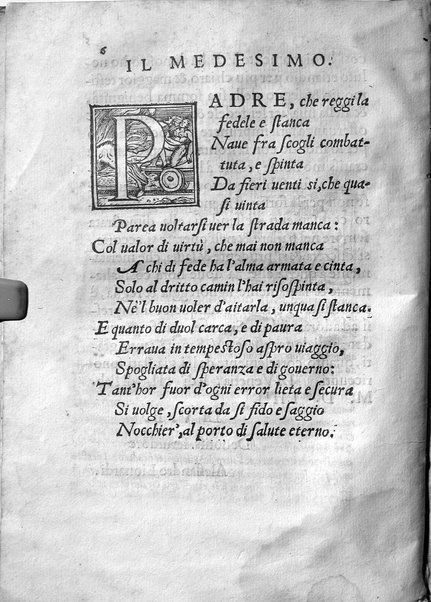 6
IL MEDESIMO.
PADRE, che reggi la
fedele e stanca
Naue fra scogli combat-
tuta, e spinta
Da fieri uenti si, che qua-
si uinta
Parea uoltarsi uer la strada manca:
Col ualor di uirtù, che mai non manca
A chi di fede ha l'alma armata e cinta,
Solo al dritto camin l'hai risospinta,
Ne'l buon uoler d'aitarla, unqua si stanca.
E quanto di duol carca, e di paura
Erraua in tempestoso aspro uiaggio,
Spogliata di speranza e di gouerno:
Tant'hor fuor d'ogni error lieta e secura
Si uolge, scorta da si fido e saggio
Nocchier', al porto di salute eterno.